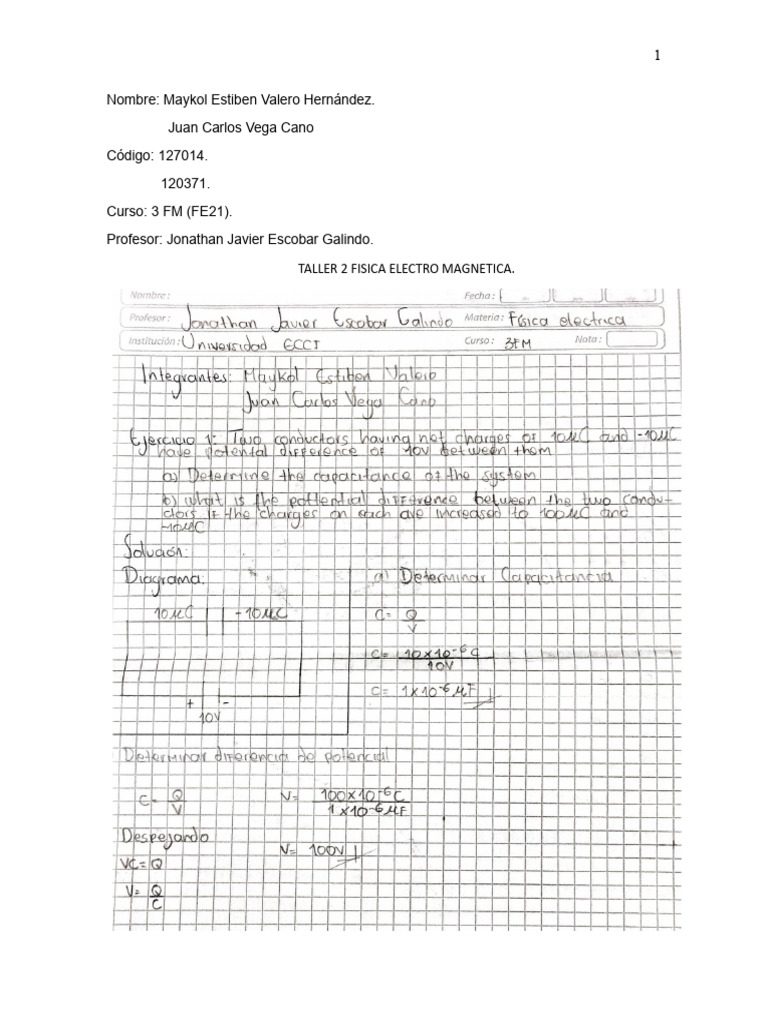 1
Nombre: Maykol Estiben Valero Hernández.
Juan Carlos Vega Cano
Código: 127014.
120371.
Curso: 3 FM (FE21).
Profesor: Jonathan Javier Escobar Galindo.
TALLER 2 FISICA ELECTRO MAGNETICA.
Nombre: Fecha:
Profesor: Jonathan Javier Escobar Galindo Materia: Física electrica
Institución: Universidad ECCI Curso: 3FM Nota:
Integrantes: Maykol Estiben Valero
Juan Carlos Vega Cano
Ejercicio 1: Two conductors having net charges of 10μC and -10μC
have potental difference of 10V between them
a) Determine the capacitance of the system
b) what is the pottential difference between the two condu-
ctors if the charges on each are increased to 100μC and
-10μC
Solución:
Diagrama: a) Determinar Capacitancia
10μC -10μC C= Q
V
C= 10x10⁻⁶C
10V
C= 1x10⁻⁶μF
+ -
10V
Determinar diferencia de potencial
C= Q V= 100x10⁻⁶C
V 1x10⁻⁶μF
Despejando V= 100V
VC=Q
V= Q
C